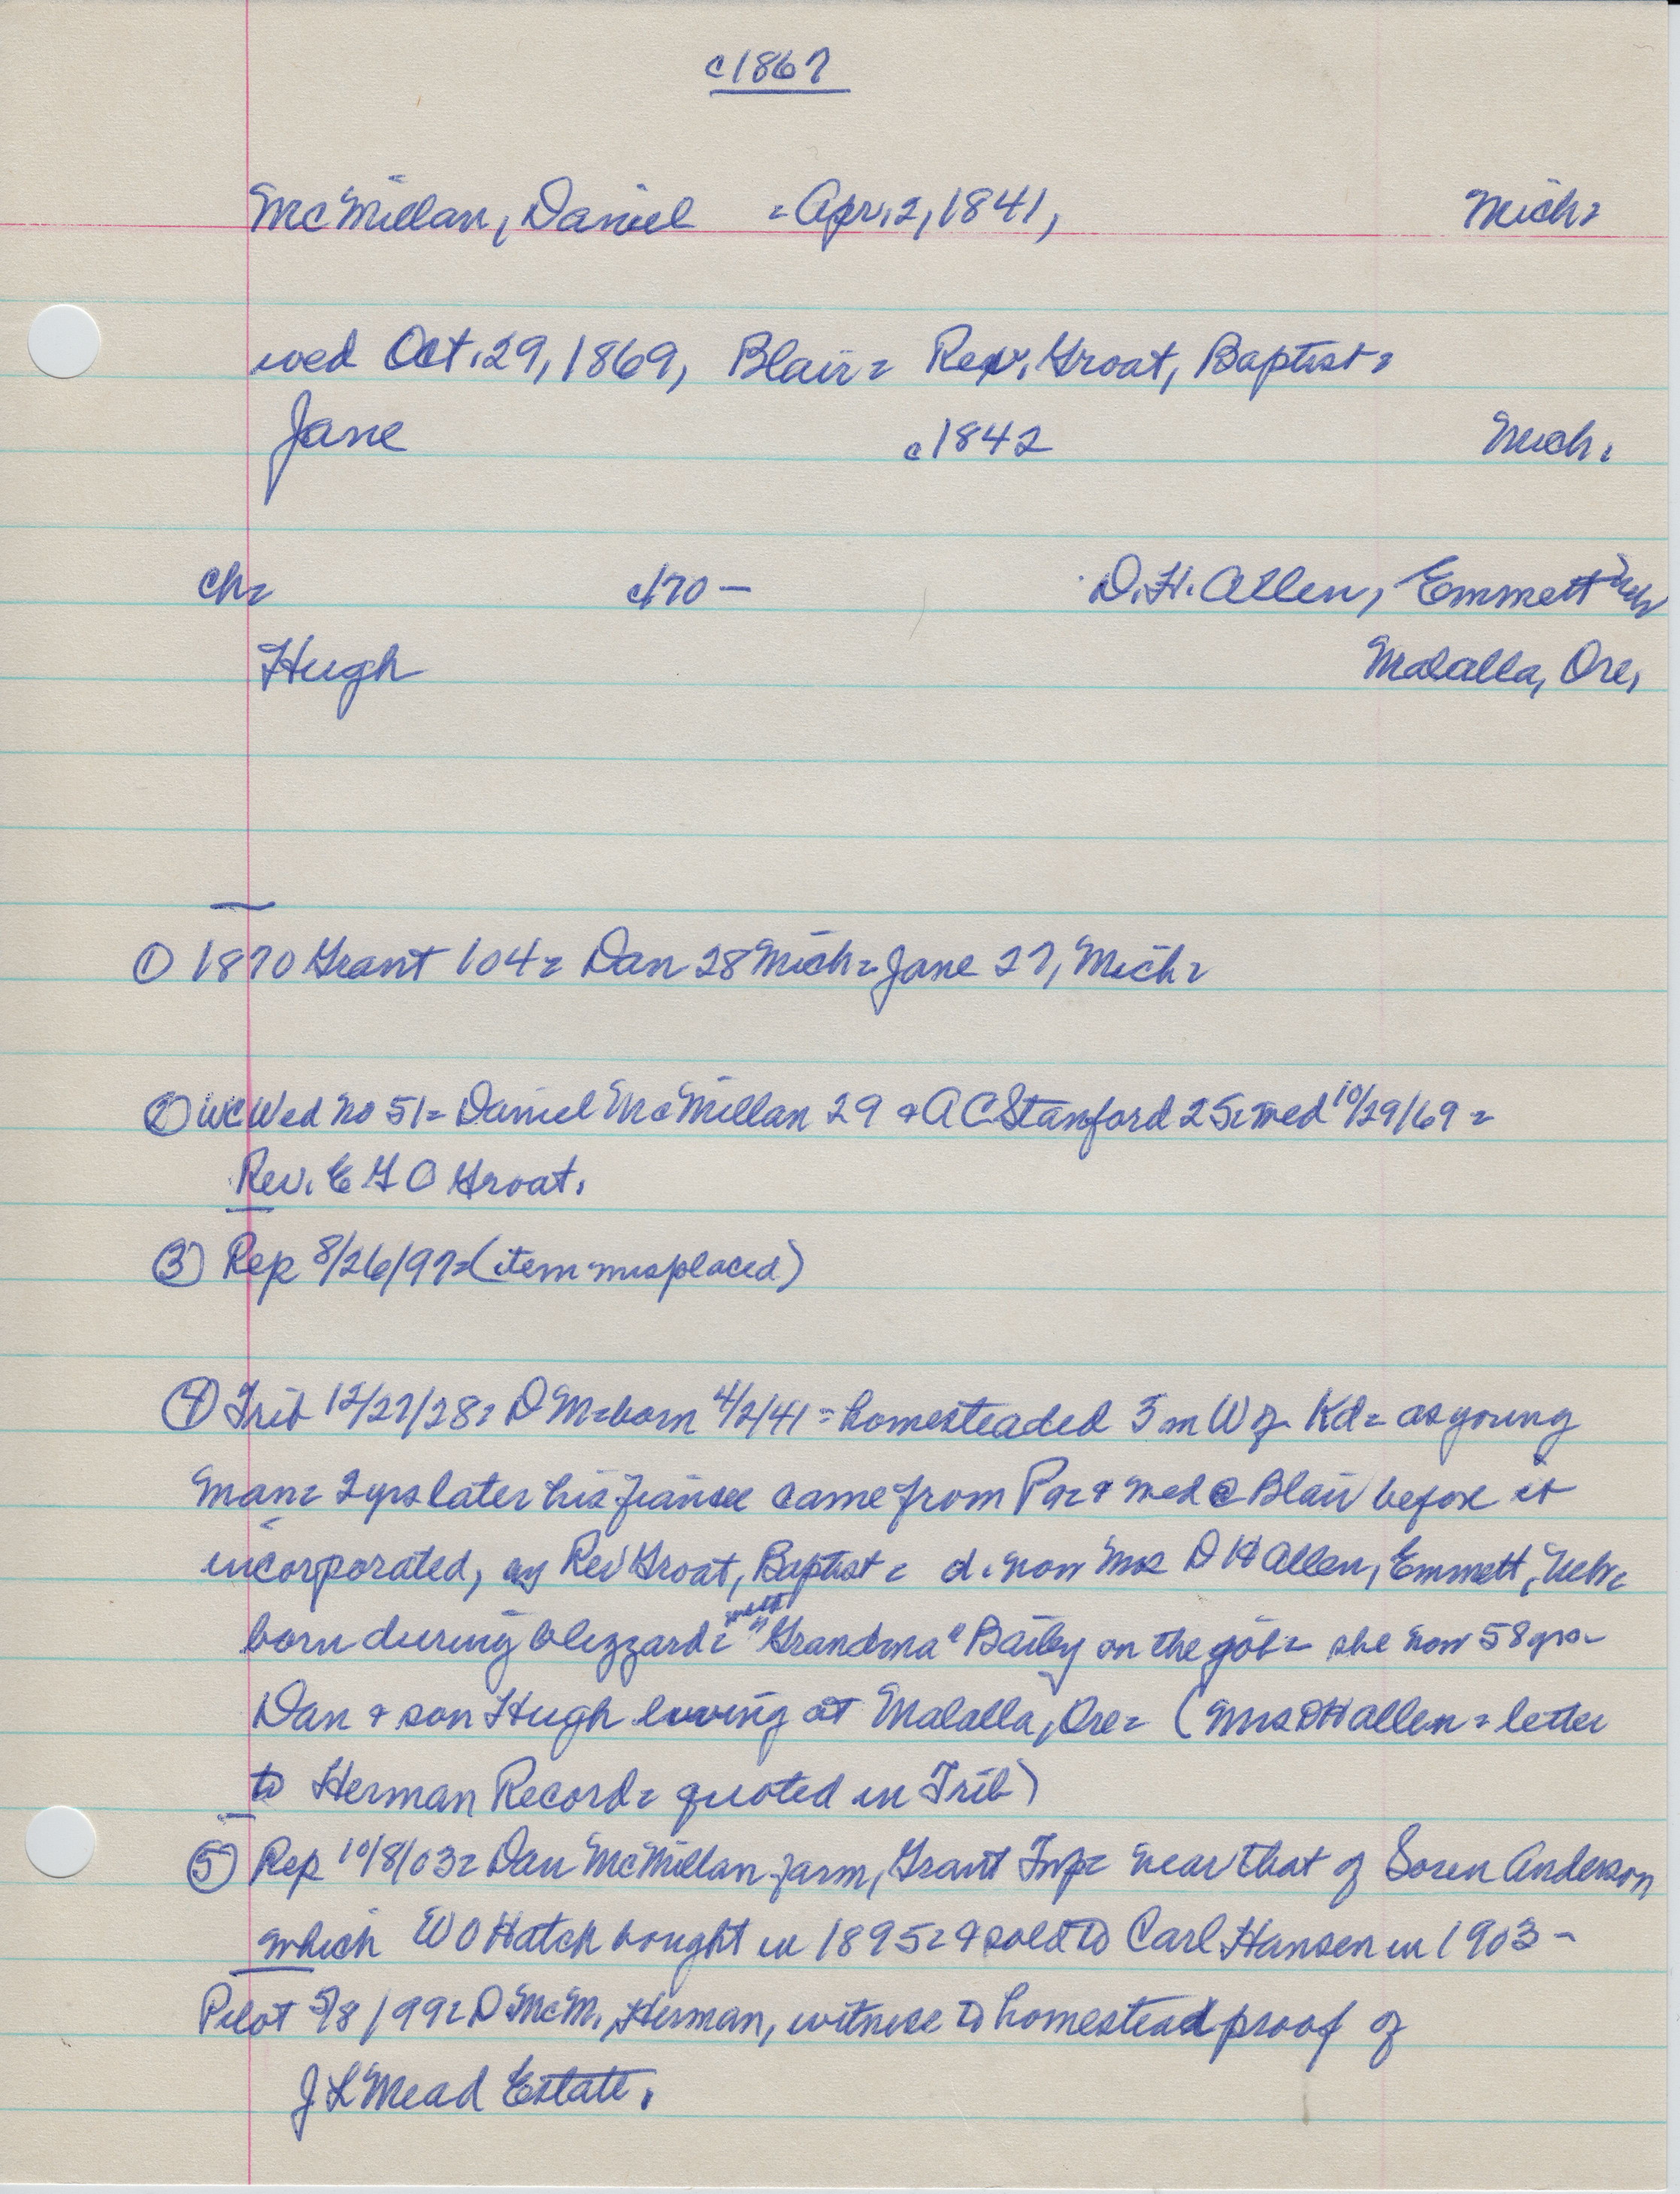 c1867
McMillan, Daniel = Apr. 2, 1841, Mich=
wed Oct. 29, 1869, Blair= Rev. Groat, Baptist=
Jane c1842 Mich.
ch= c/70 – D. H. Allen, Emmett Neb
Hugh Malalla, Ore.
① 1870 Grant 104= Dan 28 Mich= Jane 27, Mich=
② WC Wed no 51= Daniel McMillan 29 + A C Stanford 25= wed 10/29/69 =
Rev. E G O Groat.
③ Rep 8/26/97= (item misplaced)
④ Trib 12/27/28= D M= born 4/2/41 = homesteaded 5 m W of Kd= as young
man= 2 yrs later his fiancee came from Pa= + wed @ Blair before it
incorporated, by Rev Groat, Baptist = d. now Mrs D H Allen, Emmett, Nebr=
born during blizzard= with "Grandma" Baily on the job= she now 58 yrs-
Dan + son Hugh living at Malalla, Ore= (Mrs D H Allen = letter
to Herman Record= quoted in Trib)
⑤ Rep 10/8/03= Dan McMillan farm, Grant Twp= near that of Soren Anderson
which W O Hatch bought in 1895= + sold to Carl Hansen in 1903 –
Pilot 5/8/99= D McM, Herman, witness to homestead proof of
J L Mead Estate.